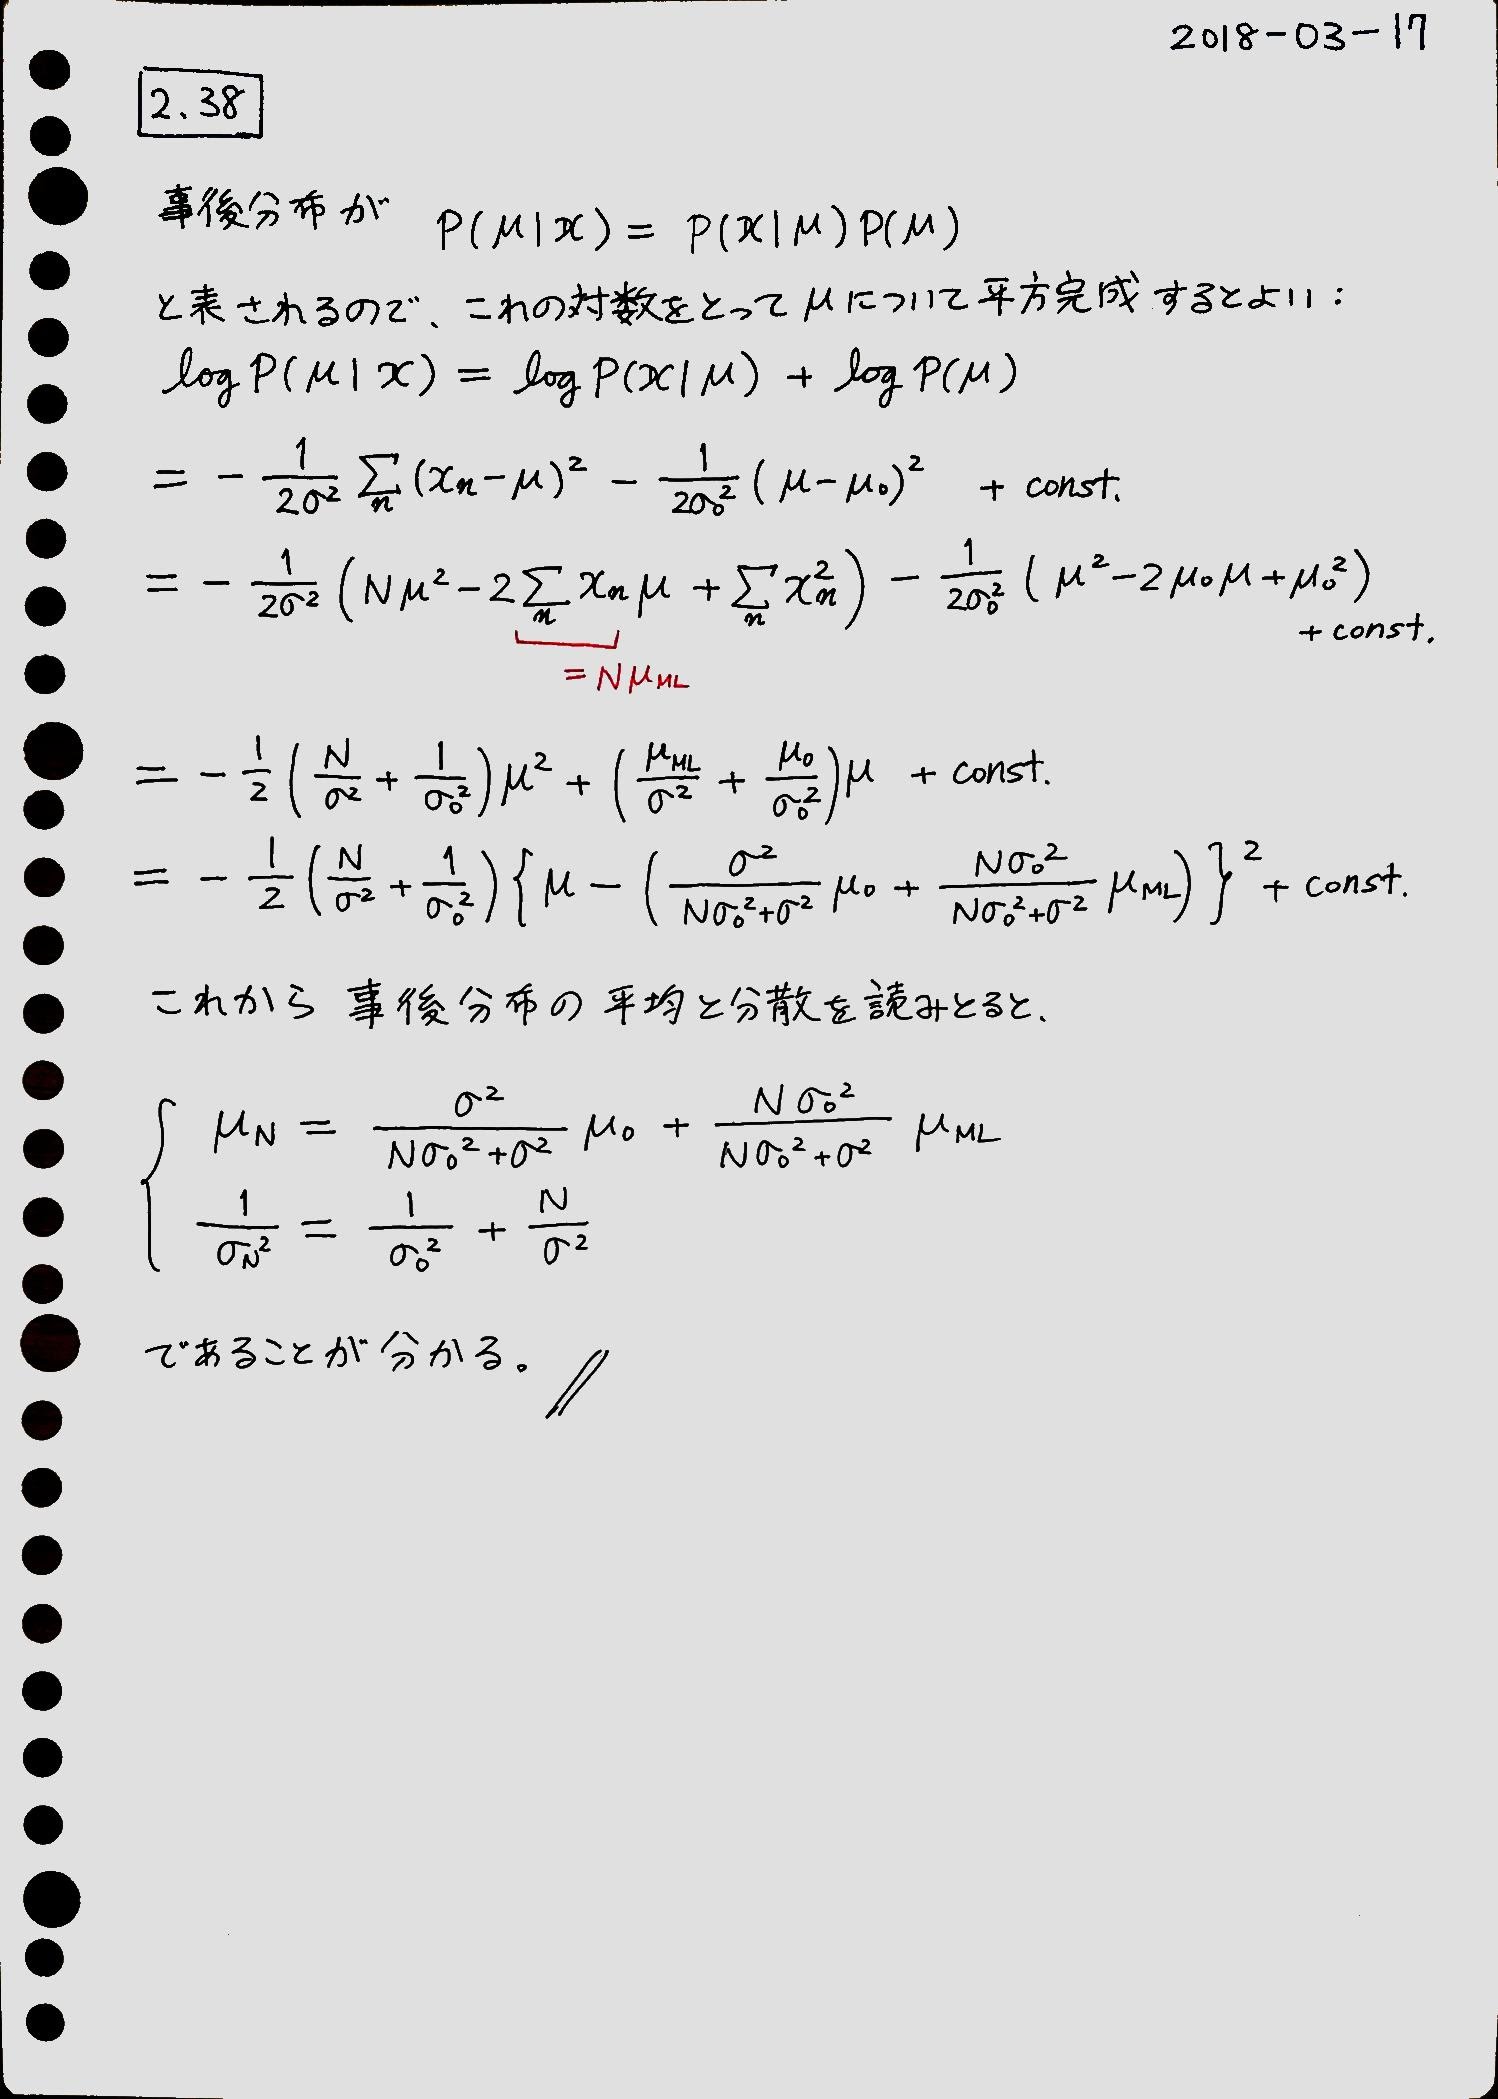 2018-03-17
2.38
事後分布が P(μ|x) = P(x|μ)P(μ)
と表されるので、これの対数をとってμについて平方完成するとよい:
log P(μ|x) = log P(x|μ) + log P(μ)
= - \frac{1}{2σ^2} \sum_n (x_n-μ)^2 - \frac{1}{2σ_0^2} (μ-μ_0)^2 + const.
= - \frac{1}{2σ^2} (Nμ^2 - 2\sum_n x_n μ + \sum_n x_n^2) - \frac{1}{2σ_0^2} (μ^2 - 2μ_0μ + μ_0^2)
+ const.
= Nμ_{ML}
= - \frac{1}{2} (\frac{N}{σ^2} + \frac{1}{σ_0^2}) μ^2 + (\frac{μ_{ML}}{σ^2} + \frac{μ_0}{σ_0^2}) μ + const.
= - \frac{1}{2} (\frac{N}{σ^2} + \frac{1}{σ_0^2}) \{ μ - (\frac{σ^2}{Nσ_0^2+σ^2} μ_0 + \frac{Nσ_0^2}{Nσ_0^2+σ^2} μ_{ML}) \}^2 + const.
これから 事後分布の 平均と分散を読みとると、
μ_N = \frac{σ^2}{Nσ_0^2+σ^2} μ_0 + \frac{Nσ_0^2}{Nσ_0^2+σ^2} μ_{ML}
\frac{1}{σ_N^2} = \frac{1}{σ_0^2} + \frac{N}{σ^2}
であることが分かる。//